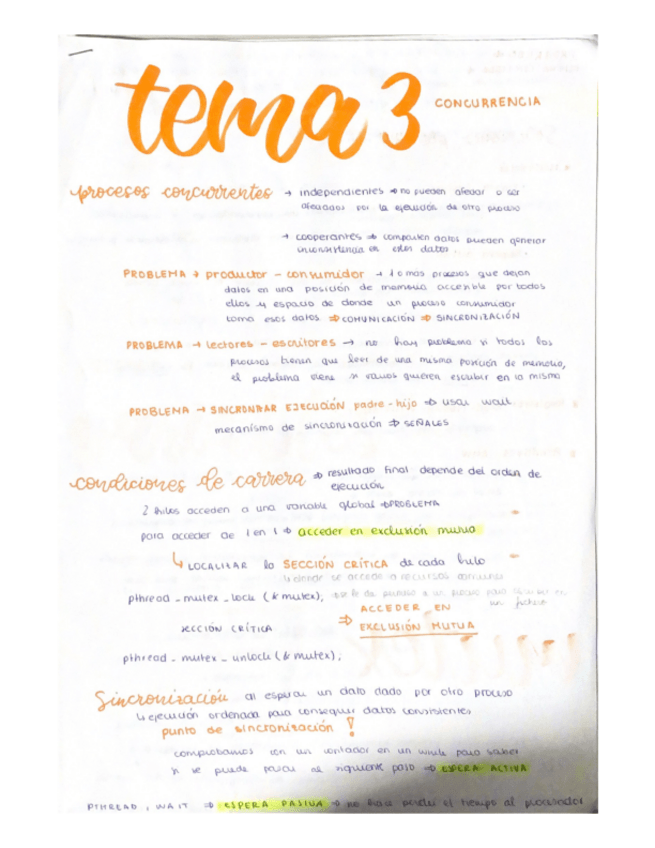 tema 3 CONCURRENCIA
procesos concurrentes → independientes → no pueden afectar o ser
afectados por la ejecución de otro proceso
→ cooperantes → comparten datos pueden generar
inconsistencia en estos datos.
PROBLEMA → productor - consumidor → 1 o más procesos que dejan
datos en una posición de memoria accesible por todos
ellos y espacio de donde un proceso consumidor
toma esos datos ⇒ COMUNICACIÓN ⇒ SINCRONIZACIÓN
PROBLEMA → lectores - escritores → no hay problema si todos los
procesos tienen que leer de una misma posición de memoria,
el problema viene si varios quieren escribir en la misma
PROBLEMA → SINCRONIZAR EJECUCIÓN padre-hijo ⇒ usar wait
mecanismo de sincronización ⇒ SEÑALES
condiciones de carrera ⇒ resultado final depende del orden de
ejecución
2 hilos acceden a una variable global ⇒ PROBLEMA
para acceder de 1 en 1 ⇒ acceder en exclusión mutua
↳ LOCALIZAR la SECCIÓN CRÍTICA de cada hilo
↳ donde se accede a recursos comunes
pthread_mutex_lock (& mutex); ⇒ se le da permiso a un proceso para
un fichero
ACCEDER EN
SECCIÓN CRÍTICA ⇒ EXCLUSIÓN MUTUA
pthread_mutex_unlock (& mutex);
Sincronización al esperar un dato dado por otro proceso
↳ ejecución ordenada para conseguir datos consistentes
punto de sincronización !
comprobamos con un contador en un while para saber
si se puede pasar al siguiente paso ⇒ ESPERA ACTIVA
PTHREAD, WAIT ⇒ ESPERA PASIVA ⇒ no hace perder el tiempo al procesador